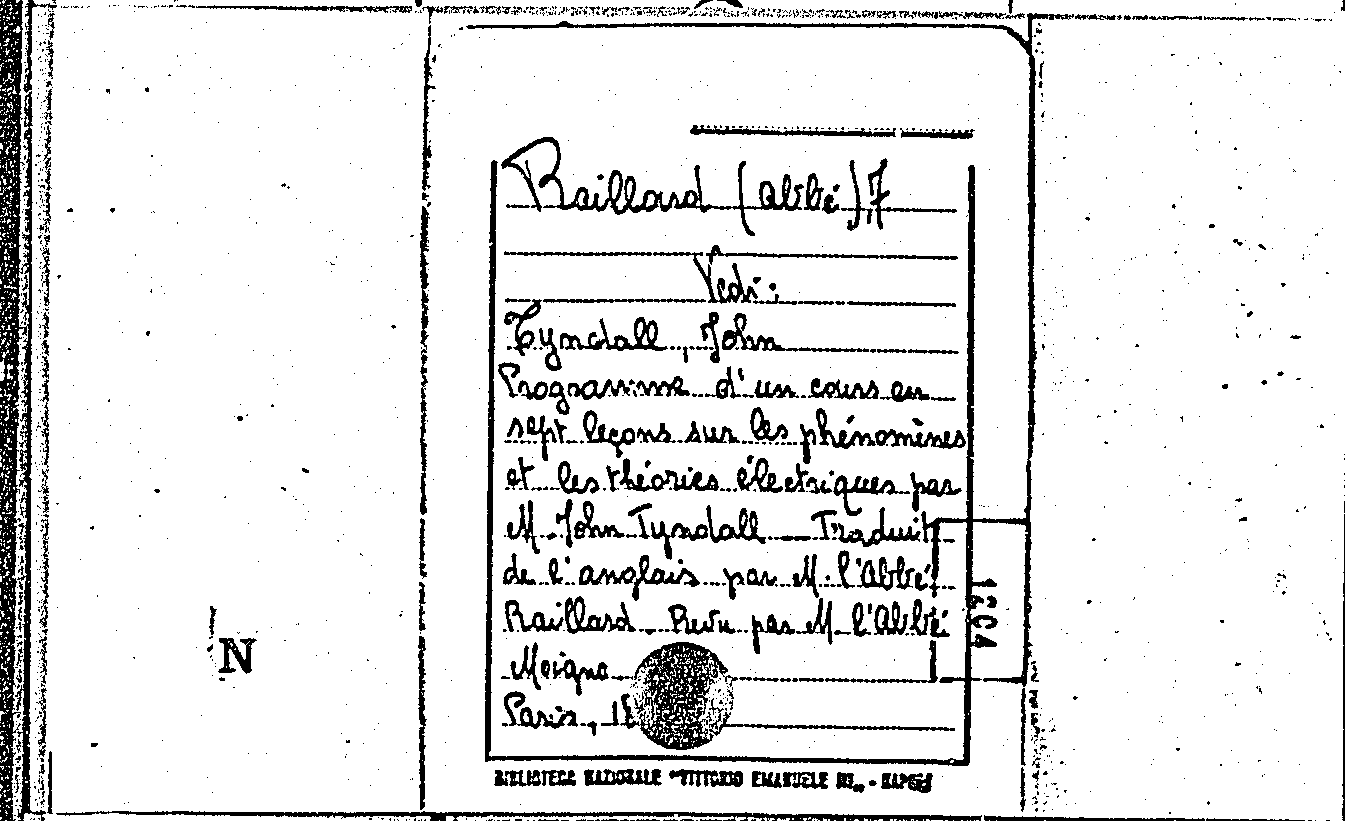 Raillard (abbé), F
Vedi:
Tyndall, John
Programme d'un cours en
sept leçons sur les phénomènes
et les théories électriques par
M. John Tyndall _ Traduit
de l'anglais par M. l'Abbé
Raillard _ Revu par M. l'Abbé
Moigno
Paris, 18
1204
N
BIBLIOTECA NAZIONALE "VITTORIO EMANUELE III" - NAPOLI